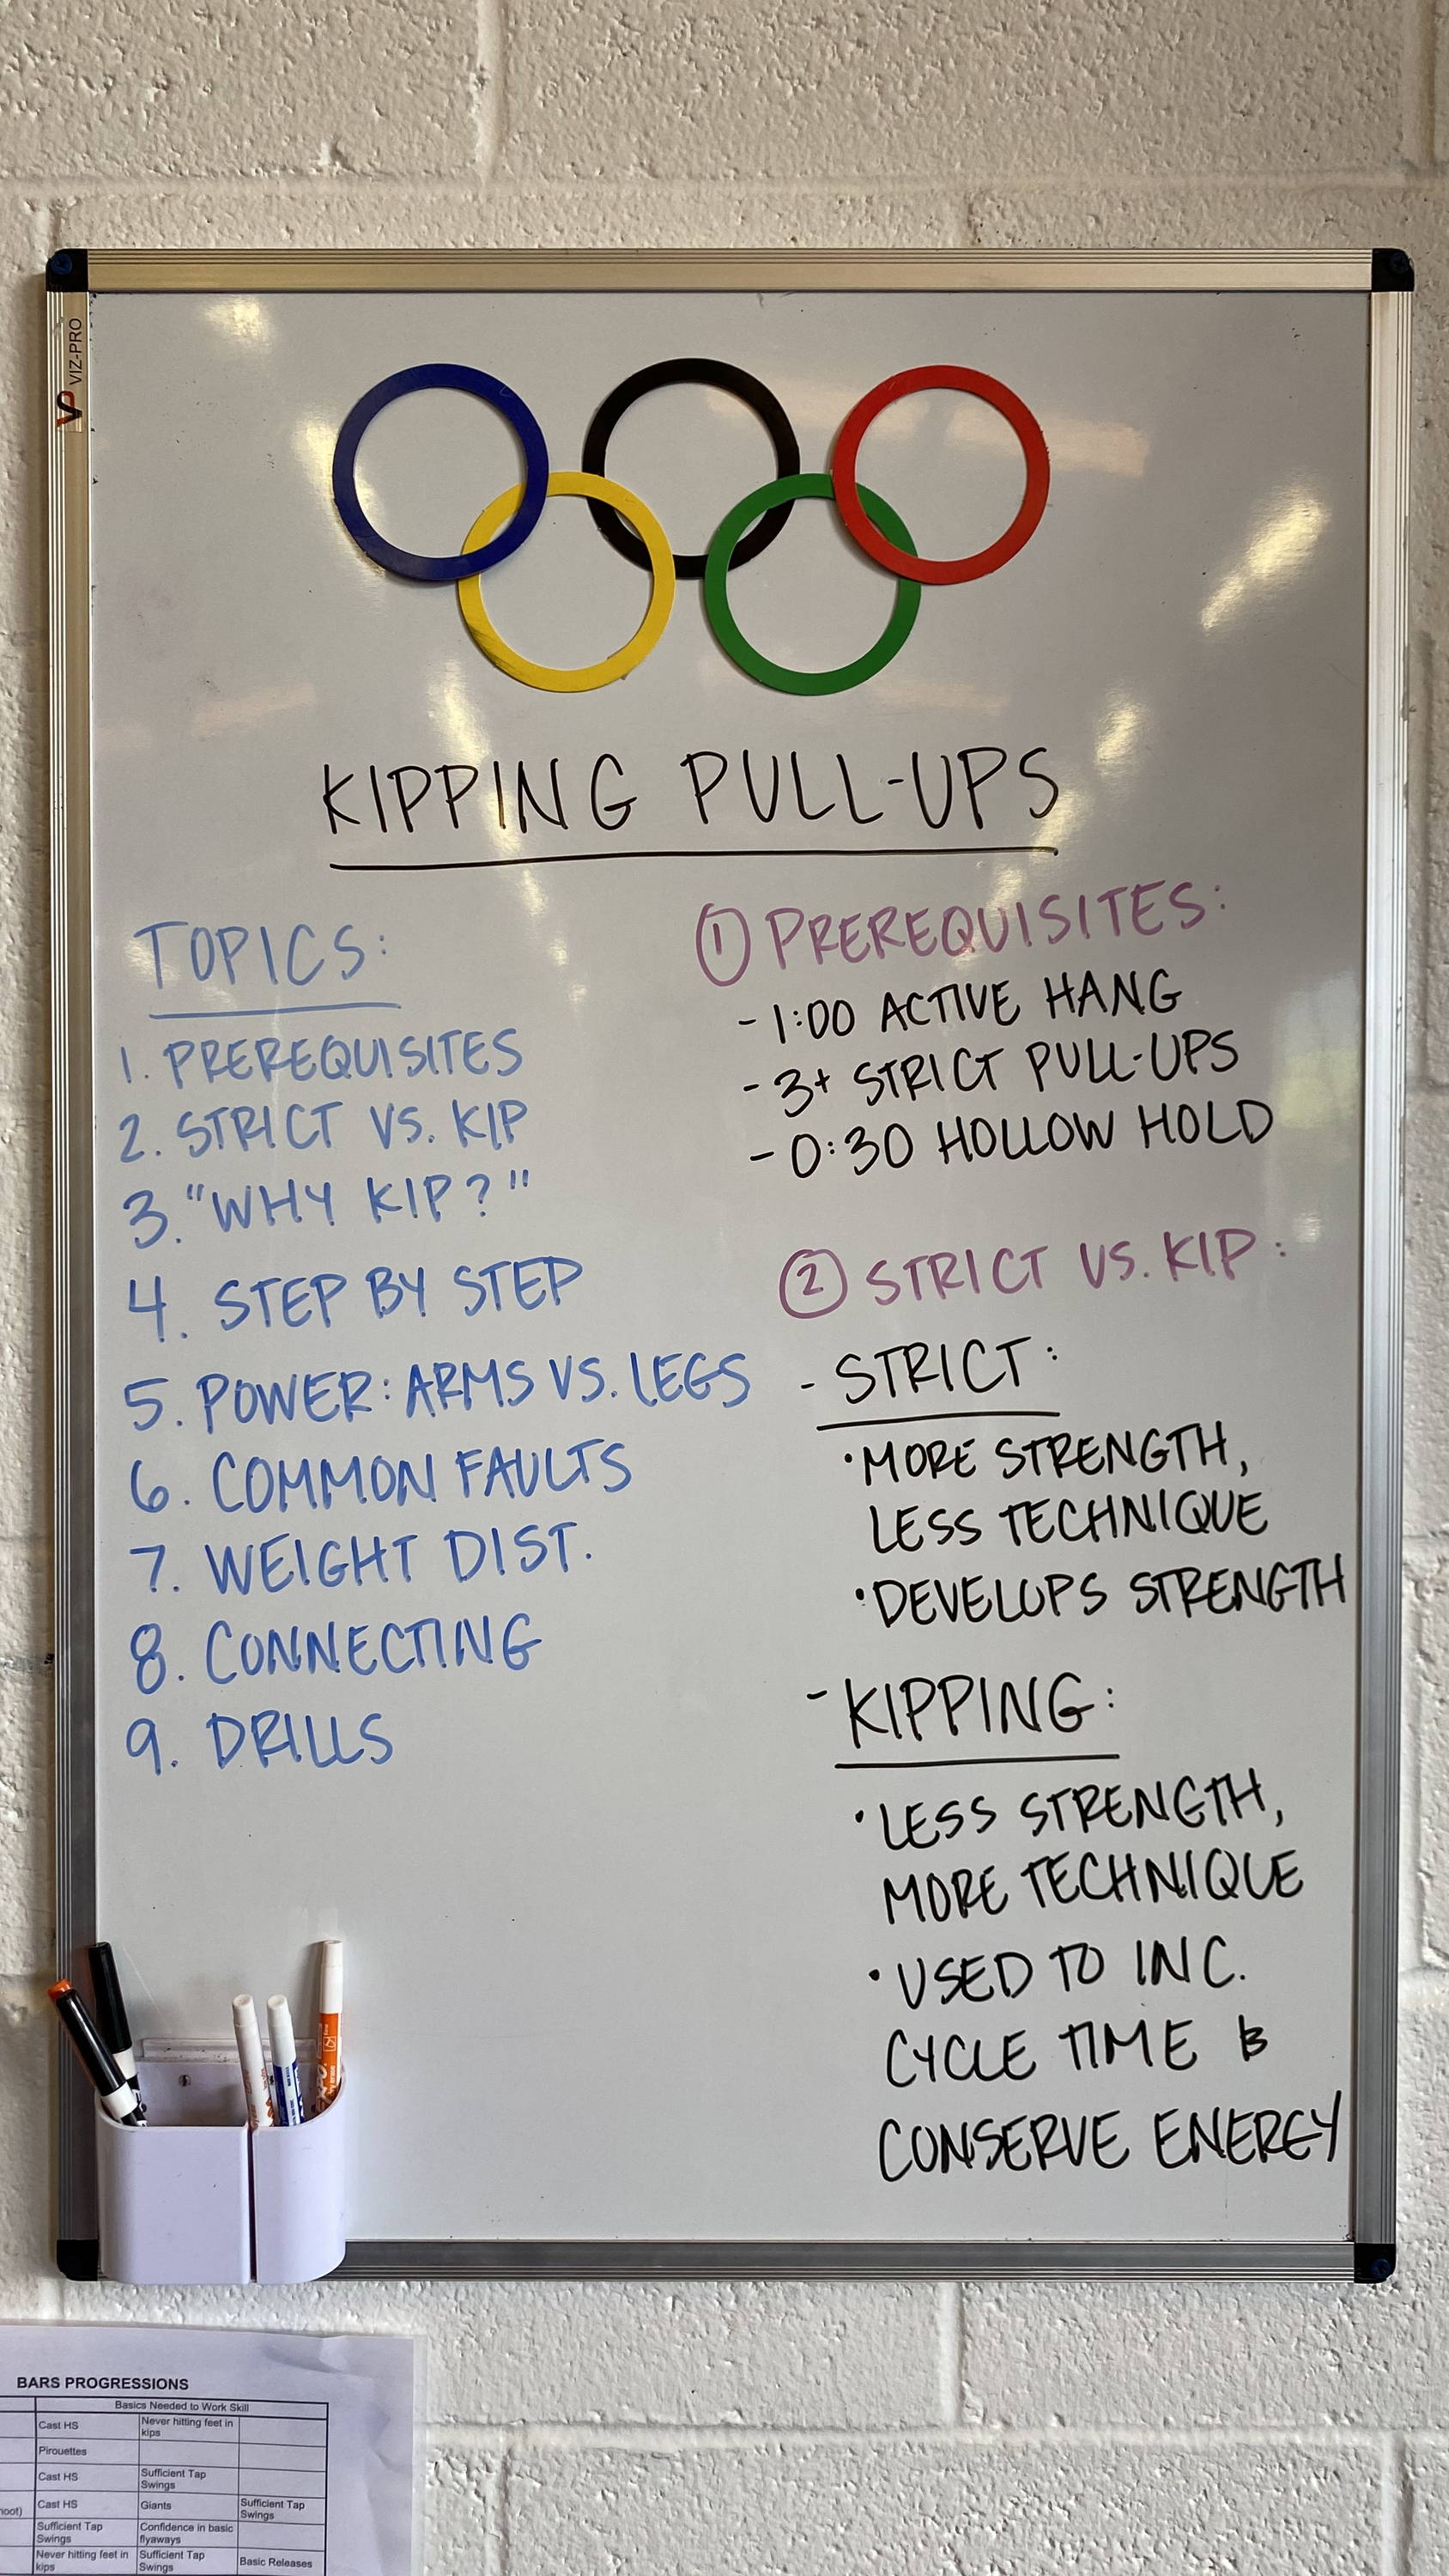 VP VIZ-PRO
KIPPING PULL-UPS
TOPICS:
1. PREREQUISITES
2. STRICT VS. KIP
3. "WHY KIP?"
4. STEP BY STEP
5. POWER: ARMS VS. LEGS
6. COMMON FAULTS
7. WEIGHT DIST.
8. CONNECTING
9. DRILLS
① PREREQUISITES:
- 1:00 ACTIVE HANG
- 3+ STRICT PULL-UPS
- 0:30 HOLLOW HOLD
② STRICT VS. KIP:
- STRICT:
• MORE STRENGTH,
LESS TECHNIQUE
• DEVELOPS STRENGTH
- KIPPING:
• LESS STRENGTH,
MORE TECHNIQUE
• USED TO INC.
CYCLE TIME &
CONSERVE ENERGY
BARS PROGRESSIONS
Basics Needed to Work Skill
Cast HS Never hitting feet in
kips
Pirouettes
Cast HS Sufficient Tap
Swings
Cast HS Giants Sufficient Tap
Swings
Sufficient Tap Confidence in basic
Swings flyaways
Never hitting feet in Sufficient Tap Basic Releases
kips Swings